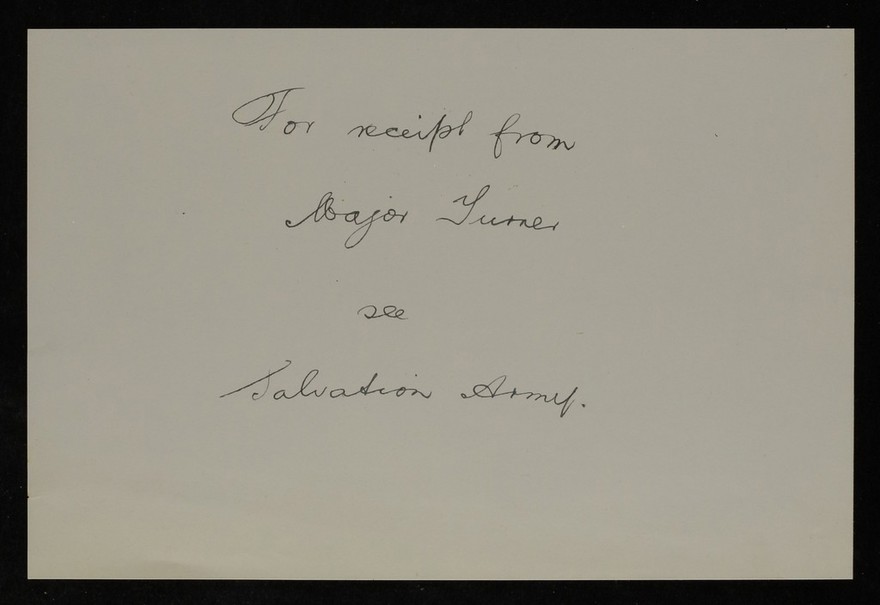 For receipt from
Major Turner
see
Salvation Army.